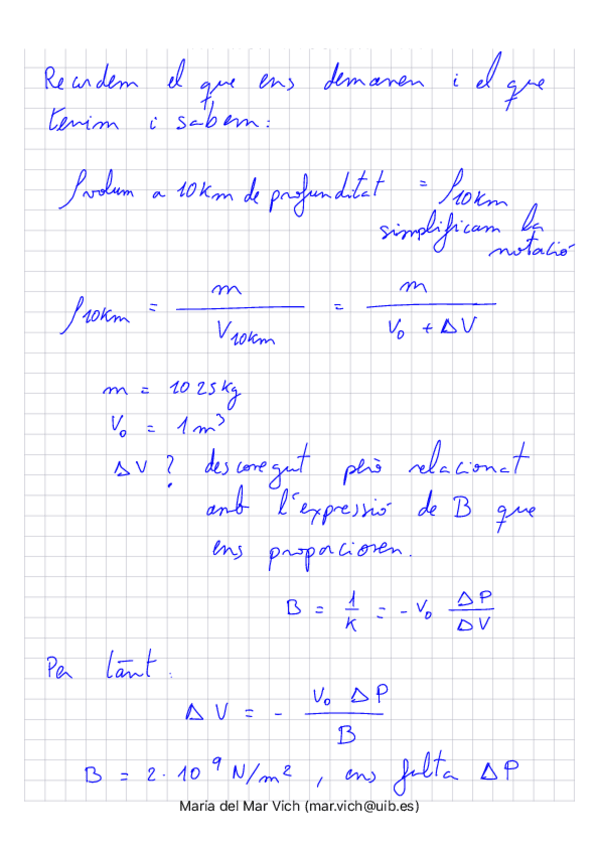 Recordem el que ens demanen i el que
tenim i sabem:
ρvolum a 10km de profunditat = ρ10km
simplificam la
notació
ρ10km = m / V10km = m / (V₀ + ΔV)
m = 1025kg
V₀ = 1m³
ΔV? desconegut però relacionat
amb l'expressió de B que
ens proporcionen.
B = 1/K = - V₀ ΔP/ΔV
Per tant:
ΔV = - V₀ ΔP / B
B = 2·10⁹ N/m², ens falta ΔP
Maria del Mar Vich (mar.vich@uib.es)